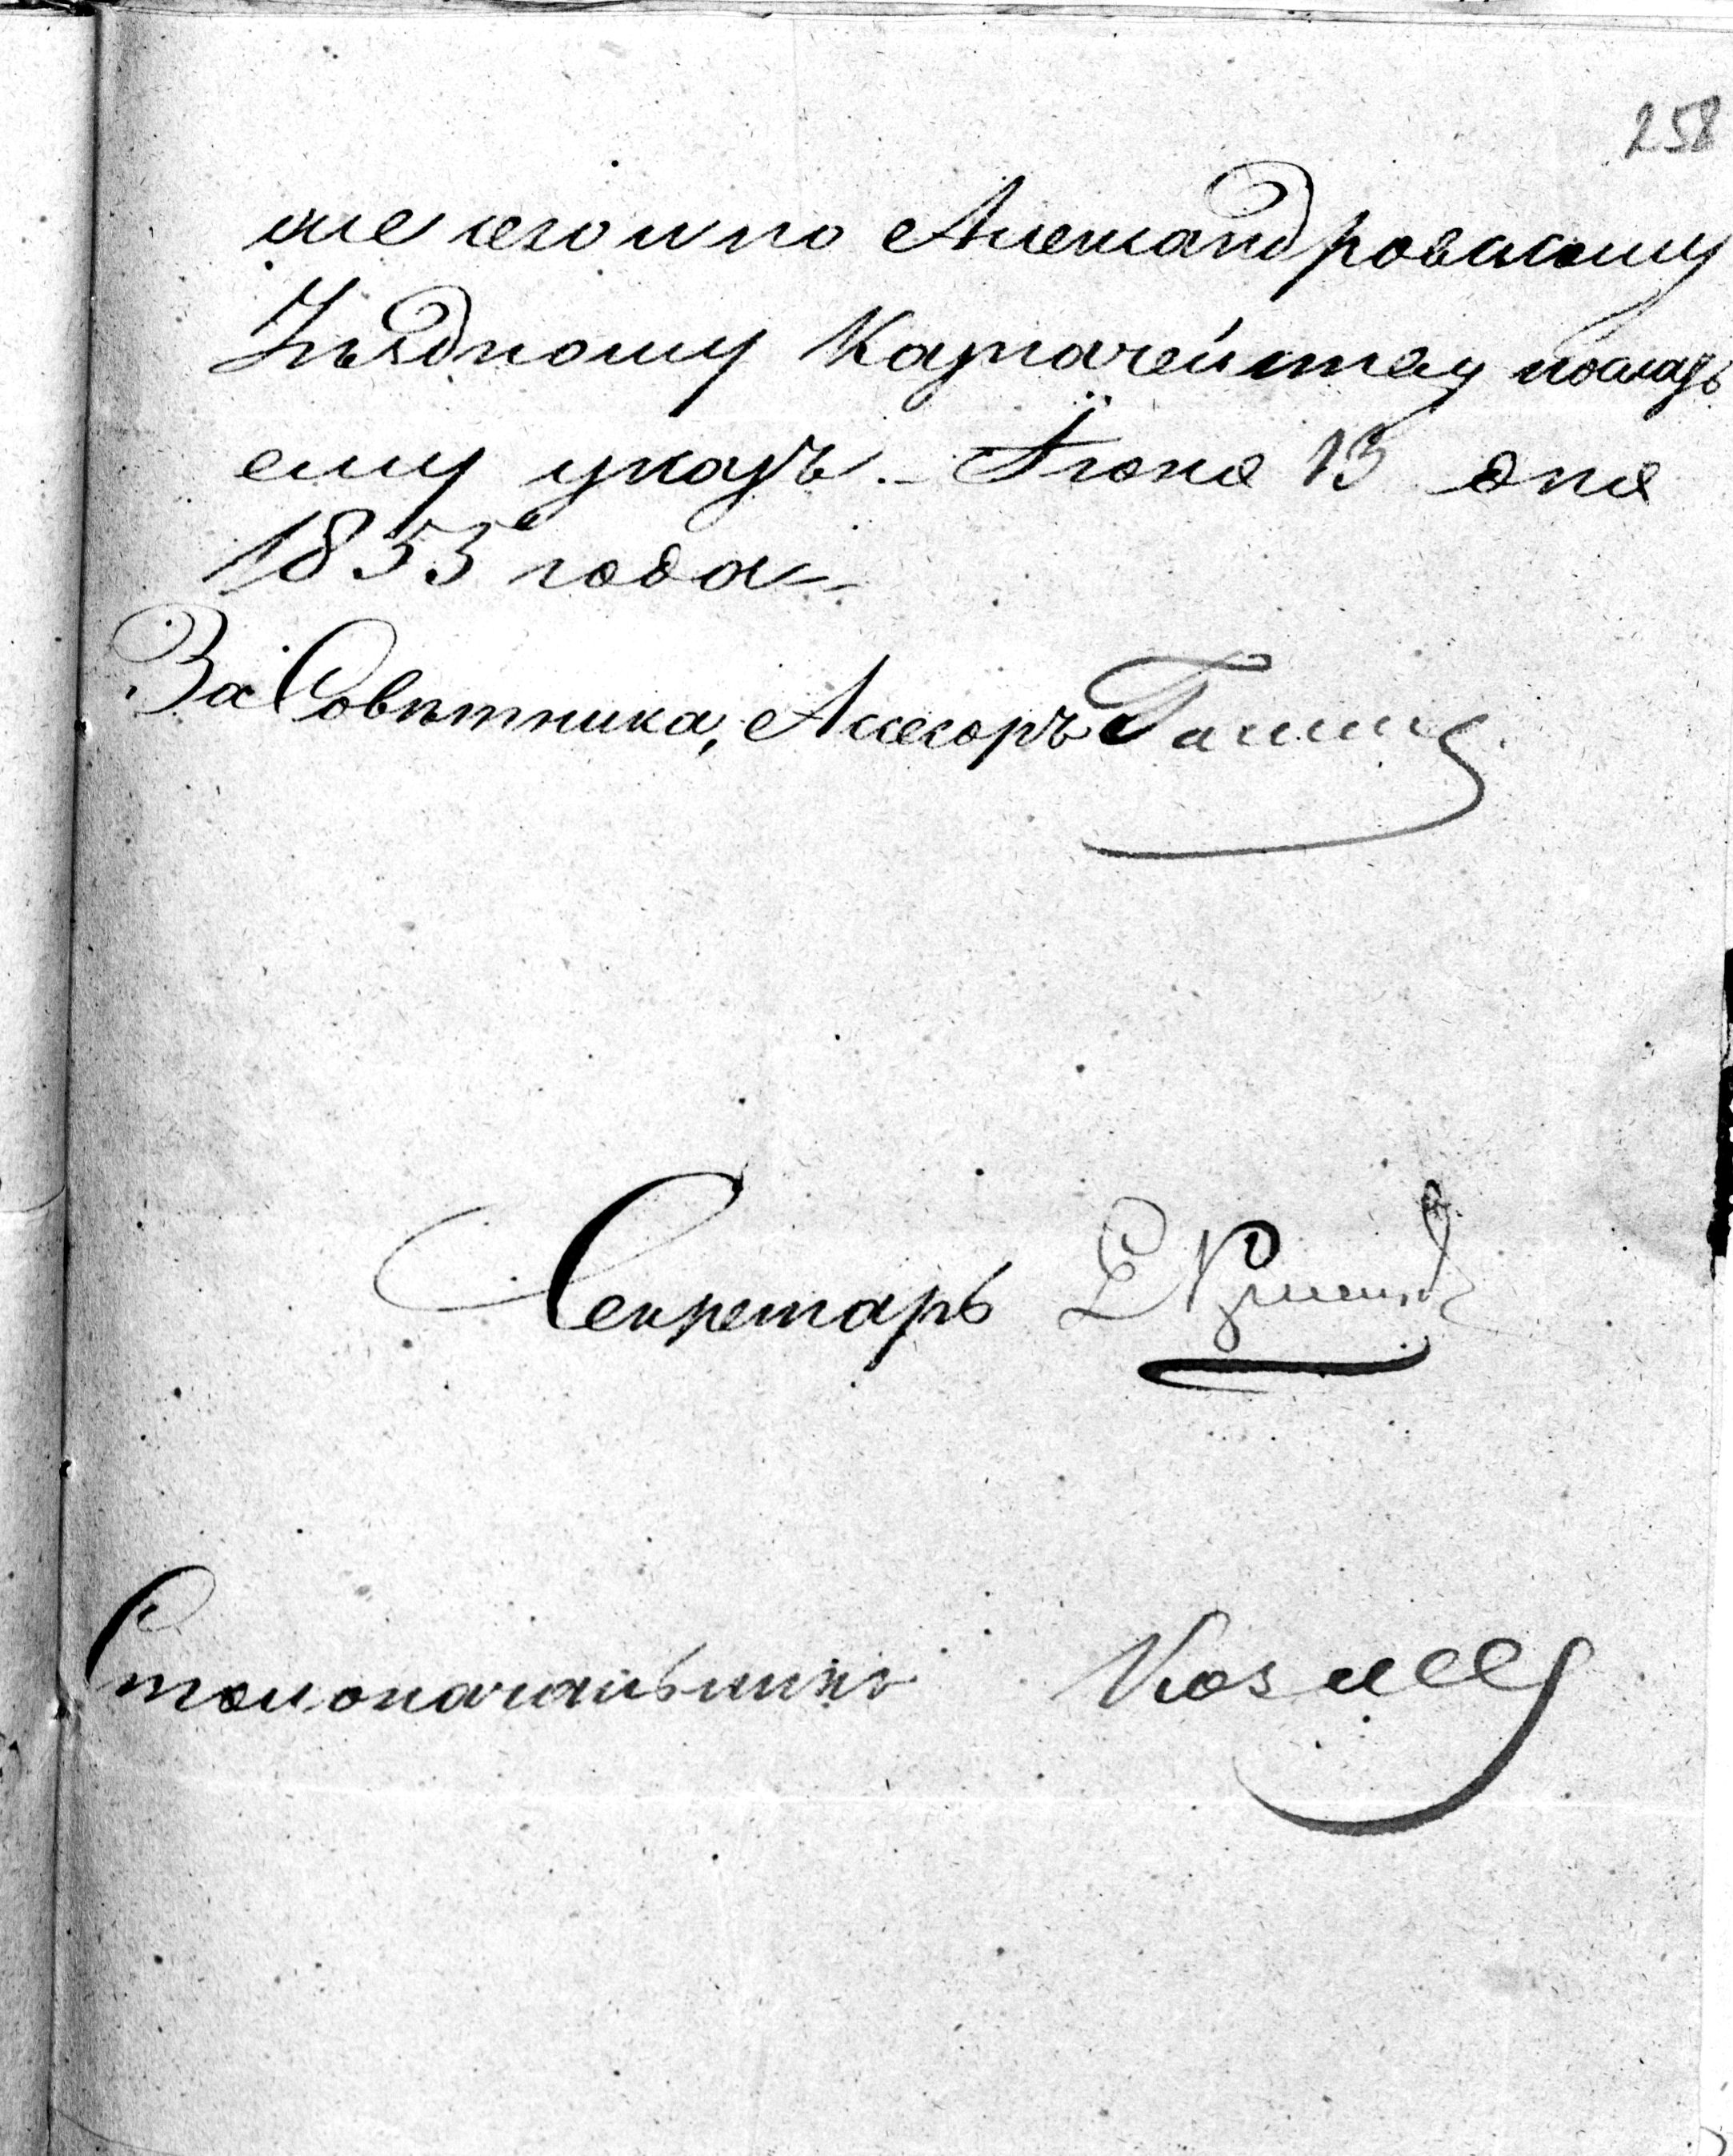 258
же сего и по Александровскому
Уѣздному Казначейству послать
ему указъ. Іюня 13 дня
1853 года
За Совѣтника, Асесоръ
Секретарь
Столоначальникъ